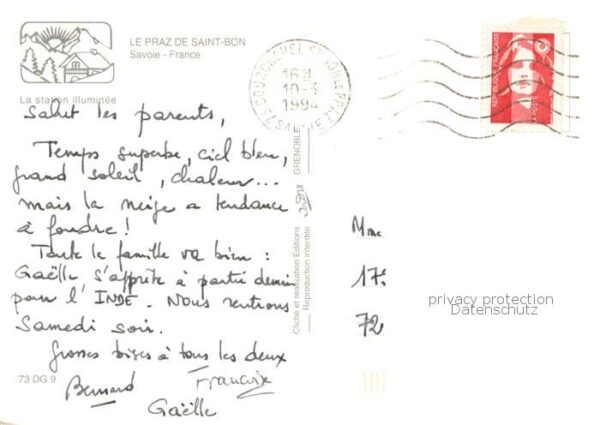 LE PRAZ DE SAINT-BON
Savoie - France
La station illuminée
Salut les parents,
Temps superbe, ciel bleu,
grand soleil, chaleur...
mais la neige a tendance
à fondre !
Toute la famille va bien :
Gaëlle s'apprête à partir demain
pour l'INDE. Nous rentrons
Samedi soir.
Grosses bises à tous les deux
Bernard Francoise
Gaëlle
73 DG 9
16 H
10-3
1994
GRENOBLE
Cliché et réalisation Editions
Reproduction interdite
REPUBLIQUE FRANÇAISE
LA POSTE
Mme
17.
72
privacy protection
Datenschutz